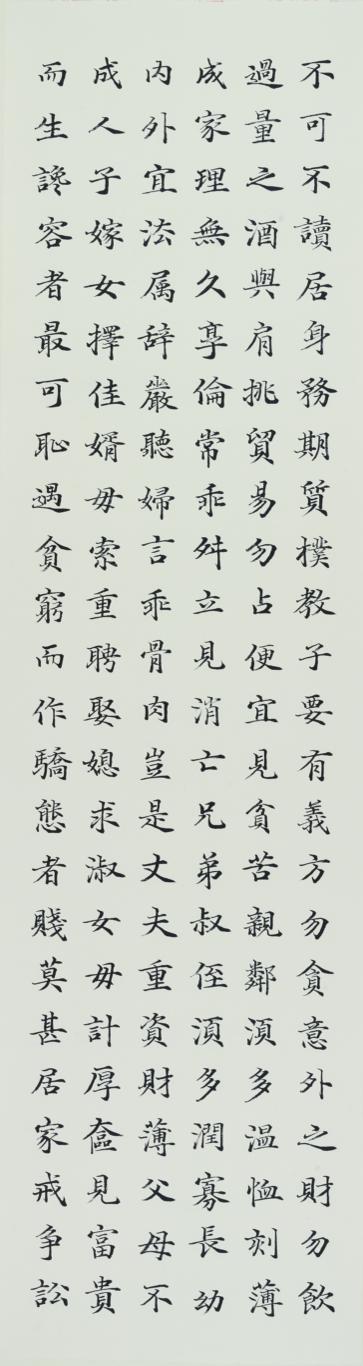 不可不讀居身務期質樸教子要有義方勿貪意外之財勿飲
過量之酒與肩挑貿易勿占便宜見貧苦親鄰須多溫恤刻薄
成家理無久享倫常乖舛立見消亡兄弟叔侄須多潤寡長幼
內外宜法属辞嚴聽婦言乖骨肉豈是丈夫重資財薄父母不
成人子嫁女擇佳婿毋索重聘娶媳求淑女毋計厚奩見富貴
而生讒容者最可恥遇貧窮而作驕態者賤莫甚居家戒争訟